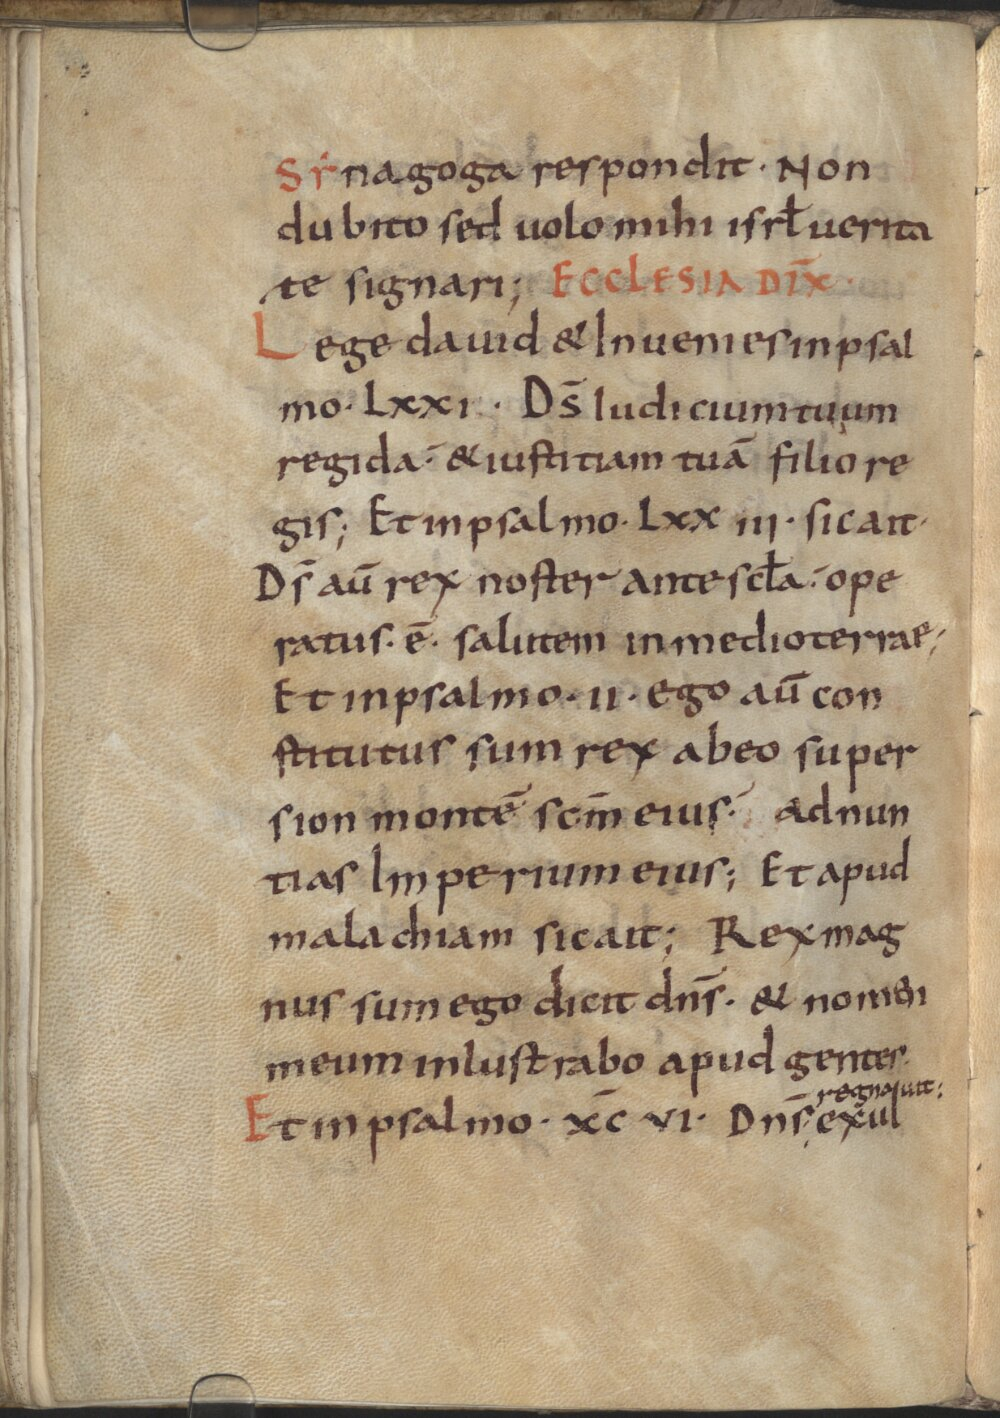 Synagoga respondit· Non
dubito sed uolo mihi isrł uerita
te signari; ECCLESIA DIX̄·
Lege dauid & Inuenies in psal
mo· Lxxi· · Ds̄ Iudicium tuum
regi da·̄ & iustitiam tuā filio re
gis; Et in psalmo· Lxx iii· sic ait·
Ds̄ aū rex noster ante scła·̄ ope
ratus· ē· salutem in medio terrae;
Et in psalmo· ii· ego aū con
stitutus sum rex ab eo super
sion montē scm̄ eius·̄ adnun
tias Imperium eius; Et apud
malachiam sic ait; Rex mag
nus sum ego dicit dns̄· & nomen
meum inlustrabo apud gentes·
regnauit:
Et in psalmo· xc̄ vi· Dns̄ exul